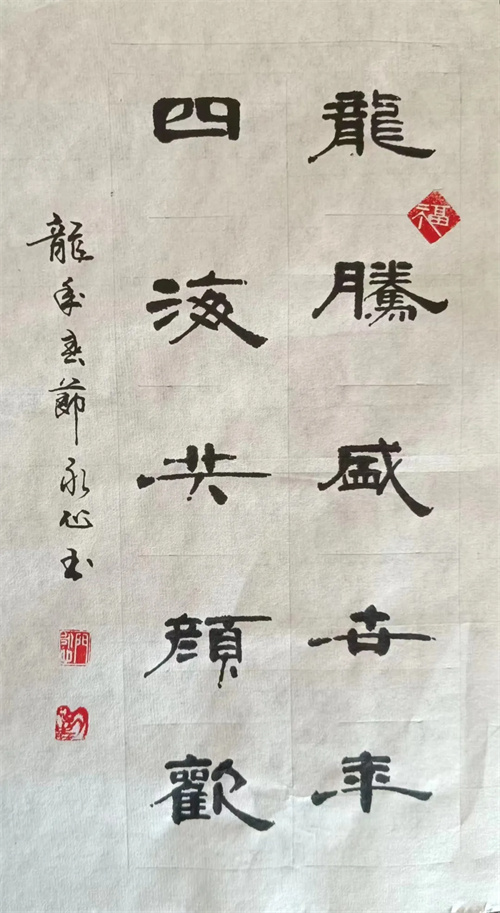 龍騰盛世年
四海共顔歡
龍年春節永心书
福